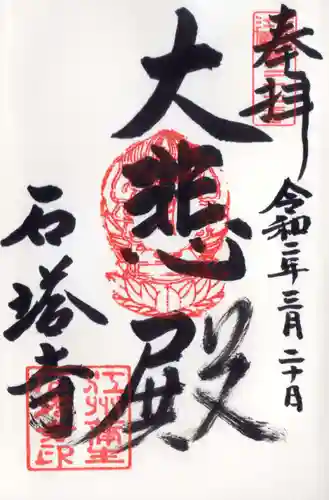 奉拝
令和二年三月二十日
大悲殿
石塔寺
江州蒲生